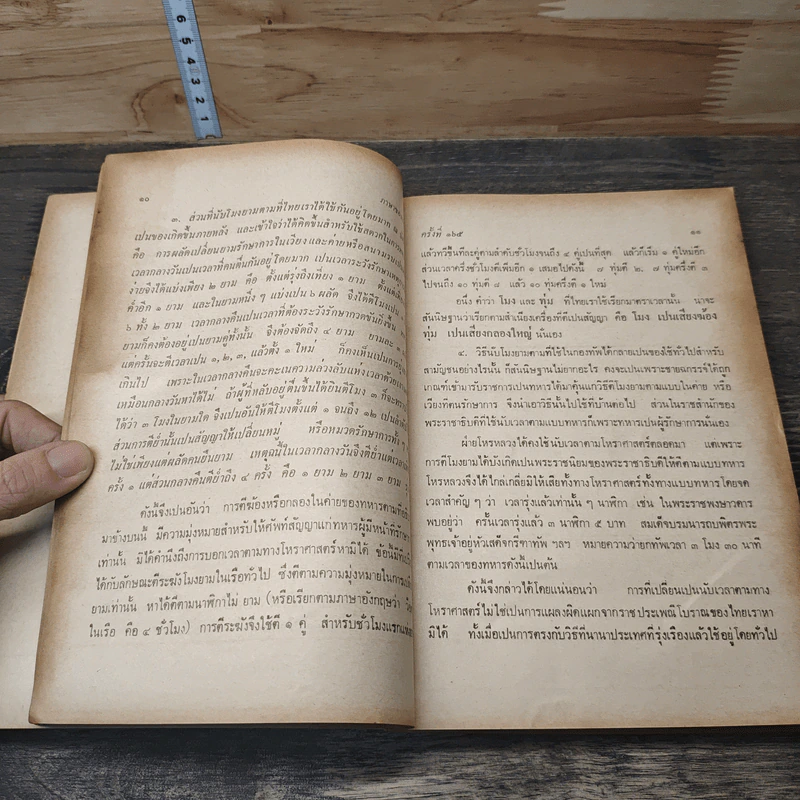 6 5 4 3 2 1
๑๐
๓. ส่วนที่นับโมงยามตามที่ไทยเราได้ใช้กันอยู่โดยมาก
เปนของเกิดขึ้นภายหลัง และเข้าใจว่าได้คิดขึ้นสำหรับใช้สดวก
คือ การผลัดเปลี่ยนยามรักษาการในเวียง และค่ายหรือสนาม
เวลากลางวันเปนเวลาที่คนตื่นกันอยู่โดยมาก เปนเวลาระวังรักษา
ง่ายจึงได้แบ่งเพียง ๒ ยาม คือ ตั้งแต่รุ่งถึงเที่ยง ๑ ยาม ตั้งแต่
ค่ำอีก ๑ ยาม และในยามหนึ่ง ๆ แบ่งเปน ๖ ผลัด จึงได้ตีโมงเปน
๖ ทั้ง ๒ ยาม เวลากลางคืนเปนเวลาที่ต้องระวังรักษากวดขันยิ่งขึ้น
ยามก็คงต้องอยู่เปนยามคู่ทั้งนั้น จึงต้องจัดถึง ๔ ยาม ยามละ
แต่ครั้นจะตีเวลาเปน ๑, ๒, ๓, แล้วตั้ง ๑ ใหม่ ก็คงเห็นเปนการ
เกินไป เพราะในเวลากลางคืนจะคะเนความล่วงลับแห่งเวลาด้วย
เหมือนกลางวันหาได้ไม่ ถ้าผู้ที่หลับอยู่ตื่นขึ้นได้ยินตีโมง ๓ ก็จะ
ได้ว่า ๓ โมงในยามใด จึงเปนอันให้ตีโมงตั้งแต่ ๑ จนถึง ๑๒ เปน
ส่วนการตีย่ำนั้นเปนสัญญาให้เปลี่ยนหมู่ หรือหมวดรักษาการทั้ง
ไม่ใช่เพียงแต่ผลัดคนยืนยาม เหตุฉนี้ในเวลากลางวันจึงตีย่ำแต่
ครั้ง ๑ แต่ส่วนกลางคืนตีย่ำถึง ๔ ครั้ง คือ ๑ ยาม ๒ ยาม ๓ ยาม
ดังนี้จึงเปนอันว่า การตีฆ้องหรือกลองในค่ายของทหารตามข้อ
มาข้างบนนี้ มีความมุ่งหมายสำหรับให้ศัพท์สัญญาแก่ทหารผู้มีหน้าที่รักษา
เท่านั้น มิได้คำนึงถึงการบอกเวลาตามทางโหราศาสตร์หามิได้ ข้อนี้
ได้กับลักษณะตีระฆังโมงยามในเรือทั่วไป ซึ่งตีตามความมุ่งหมายในการ
ยามเท่านั้น หาได้ตีตามนาฬิกาไม่ ยาม (หรือเรียกตามภาษาอังกฤษว่า
ในเรือ คือ ๔ ชั่วโมง) การตีระฆังจึงใช้ตี ๑ คู่ สำหรับชั่วโมงแรก
ครั้งที่ ๑๖๕
๑๑
แล้วทวีขึ้นทีละคู่ตามลำดับชั่วโมงจนถึง ๔ คู่เปนที่สุด แล้วก็เริ่ม ๑ คู่ใหม่อีก
ส่วนเวลาครึ่งชั่วโมงตีเพิ่มอีก ๑ เสมอไปดังนี้ ๗ ทุ่มตี ๒, ๗ ทุ่มครึ่งตี ๓
ไปจนถึง ๑๐ ทุ่มตี ๘ แล้ว ๑๐ ทุ่มครึ่งตี ๑ ใหม่
อนึ่ง คำว่า โมง และ ทุ่ม ที่ไทยเราใช้เรียกมาตราเวลานั้น น่าจะ
สันนิษฐานว่าเรียกตามสำเนียงเครื่องที่ตีเปนสัญญา คือ โมง เปนเสียงฆ้อง
ทุ่ม เปนเสียงกลองใหญ่ นั่นเอง
๔. วิธีนับโมงยามตามที่ใช้ในกองทัพได้กลายเปนของใช้ทั่วไปสำหรับ
สามัญชนอย่างไรนั้น ก็สันนิษฐานไม่ยากอะไร คงจะเปนเพราะชายฉกรรจ์ได้ถูก
เกณฑ์เข้ามารับราชการเปนทหารได้มาคุ้นแก่วิธีตีโมงยามตามแบบในค่าย หรือ
เวียงทัศนรักษาการ จึงนำเอาวิธีนั้นไปใช้ที่บ้านต่อไป ส่วนในราชสำนักของ
พระราชาธิบดีที่ใช้นับเวลาตามแบบทหารก็เพราะทหารเปนผู้รักษาการนั้นเอง
ฝ่ายโหรหลวงได้คงใช้นับเวลาตามโหราศาสตร์ตลอดมา แต่เพราะ
การตีโมงได้บังเกิดเปนพระราชนิยมของพระราชาธิบดีให้ตีตามแบบทหาร
โหรหลวงจึงได้ไกล่เกลี่ยมิให้เสียทั้งทางโหราศาสตร์ทั้งทางแบบทหารโดยจด
เวลาสำคัญ ๆ ว่า เวลารุ่งแล้วเท่านั้น ๆ นาฬิกา เช่น ในพระราชพงษาวดาร
พบอยู่ว่า ครั้นเวลารุ่งแล้ว ๓ นาฬิกา ๕ บาท สมเด็จบรมนารถบพิตรพระ
พุทธเจ้าอยู่หัวเสด็จกรีฑาทัพ ฯลฯ หมายความว่ายกทัพเวลา ๓ โมง ๓๐ นาที
ตามเวลาของทหารดังนี้เปนต้น
ดังนี้จึงกล่าวได้โดยแน่นอนว่า การที่เปลี่ยนเปนนับเวลาตามทาง
โหราศาสตร์ไม่ใช่เปนการแผลงผิดแผกจากราชประเพณีโบราณของไทยเราหา
มิได้ ทั้งเมื่อเปนการตรงกับวิธีที่นานาประเทศที่รุ่งเรืองแล้วใช้อยู่โดยทั่วไป